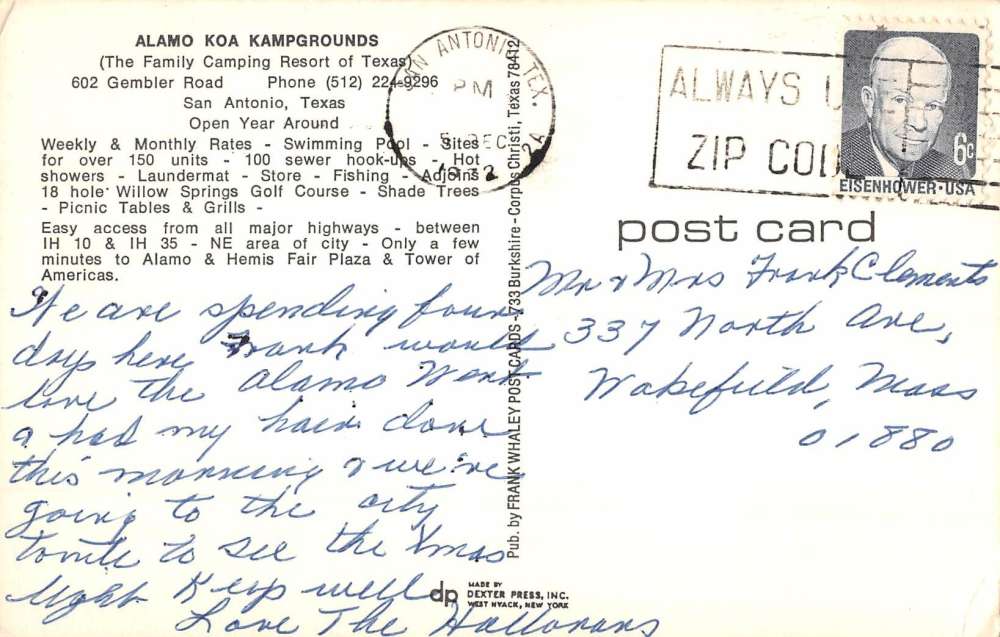 ALAMO KOA KAMPGROUNDS
(The Family Camping Resort of Texas)
602 Gembler Road Phone (512) 224-9296
San Antonio, Texas
Open Year Around
Weekly & Monthly Rates - Swimming Pool - Sites
for over 150 units - 100 sewer hook-ups - Hot
showers - Laundermat - Store - Fishing - Adjoins
18 hole Willow Springs Golf Course - Shade Trees
- Picnic Tables & Grills -
Easy access from all major highways - between
IH 10 & IH 35 - NE area of city - Only a few
minutes to Alamo & Hemis Fair Plaza & Tower of
Americas.
We are spending four
days here Frank would
love the Alamo Went
& had my hair done
this morning & we're
going to the city
tonite to see the Xmas
light Keep well
Love The Hallorans
SAN ANTONIO, TEX.
PM
5 DEC
1972
Pub. by FRANK WHALEY POST CARDS - 733 Burkshire - Corpus Christi, Texas 78412
ALWAYS U
ZIP CODE
6c
EISENHOWER·USA
post card
Mr & Mrs Frank Clements
337 North Ave,
Wakefield, Mass
01880
dp
MADE BY
DEXTER PRESS, INC.
WEST NYACK, NEW YORK